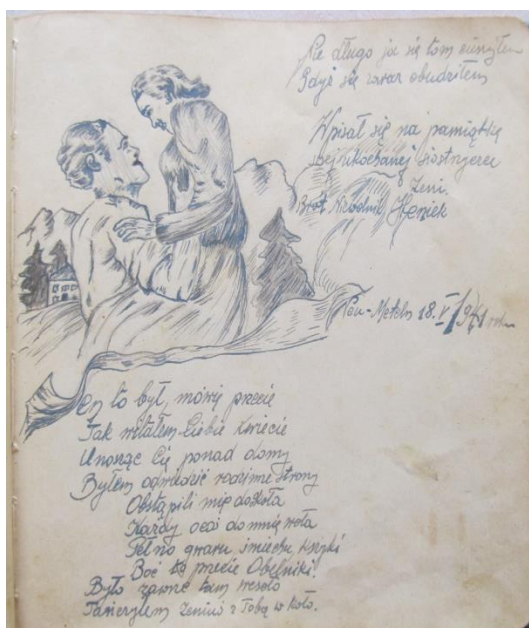 Nie długo ja się tem cieszyłem
Gdyż się zaraz obudziłem
Wpisał się na pamiątkę
swej ukochanej siostrzyczce
Zeni.
Brat Niewolnik Heniek
Neu-Meteln 18.V 1941 roku
Sen to był, mówię przecie
Jak witałem Ciebie kwiecie
Unosząc Cię ponad domy
Byłem odwiedzić rodzinne strony
Obstąpili mię dookoła
Każdy coś do mnie woła
Pełno gwaru śmiechu, krzyki
Boć to przecie Obelniki!
Było zawsze tam wesoło
Tańczyłem Zeniuś z Tobą w koło.